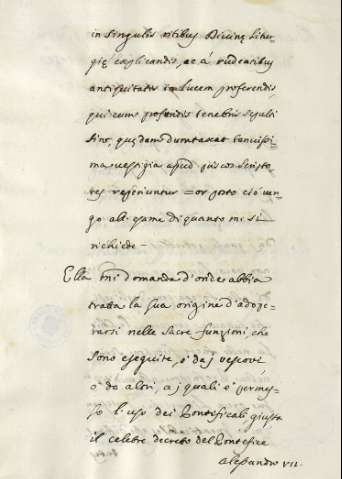 in singulis ritibus Divinę Litur-
gię explicandis, ac à ruderibus
antiquitatis in lucem proferendis
qui cum profundis tenebris sepulti
sint, quędam dumtaxat tenuissi-
ma vestigia apud priscos Scripto-
res reperiuntur = or posto ciò ven-
go all'esame di quanto mi si
richiede -
Ella mi domanda d'onde abbia
tratta la sua origine d'adope-
rarsi nelle Sacre funzioni, che
sono eseguite, ò da j vescovi
ò da altri, a j quali è permes-
so l'uso dei Pontificali giusta
il celebre decreto del Pontefice
Alessandro VII.